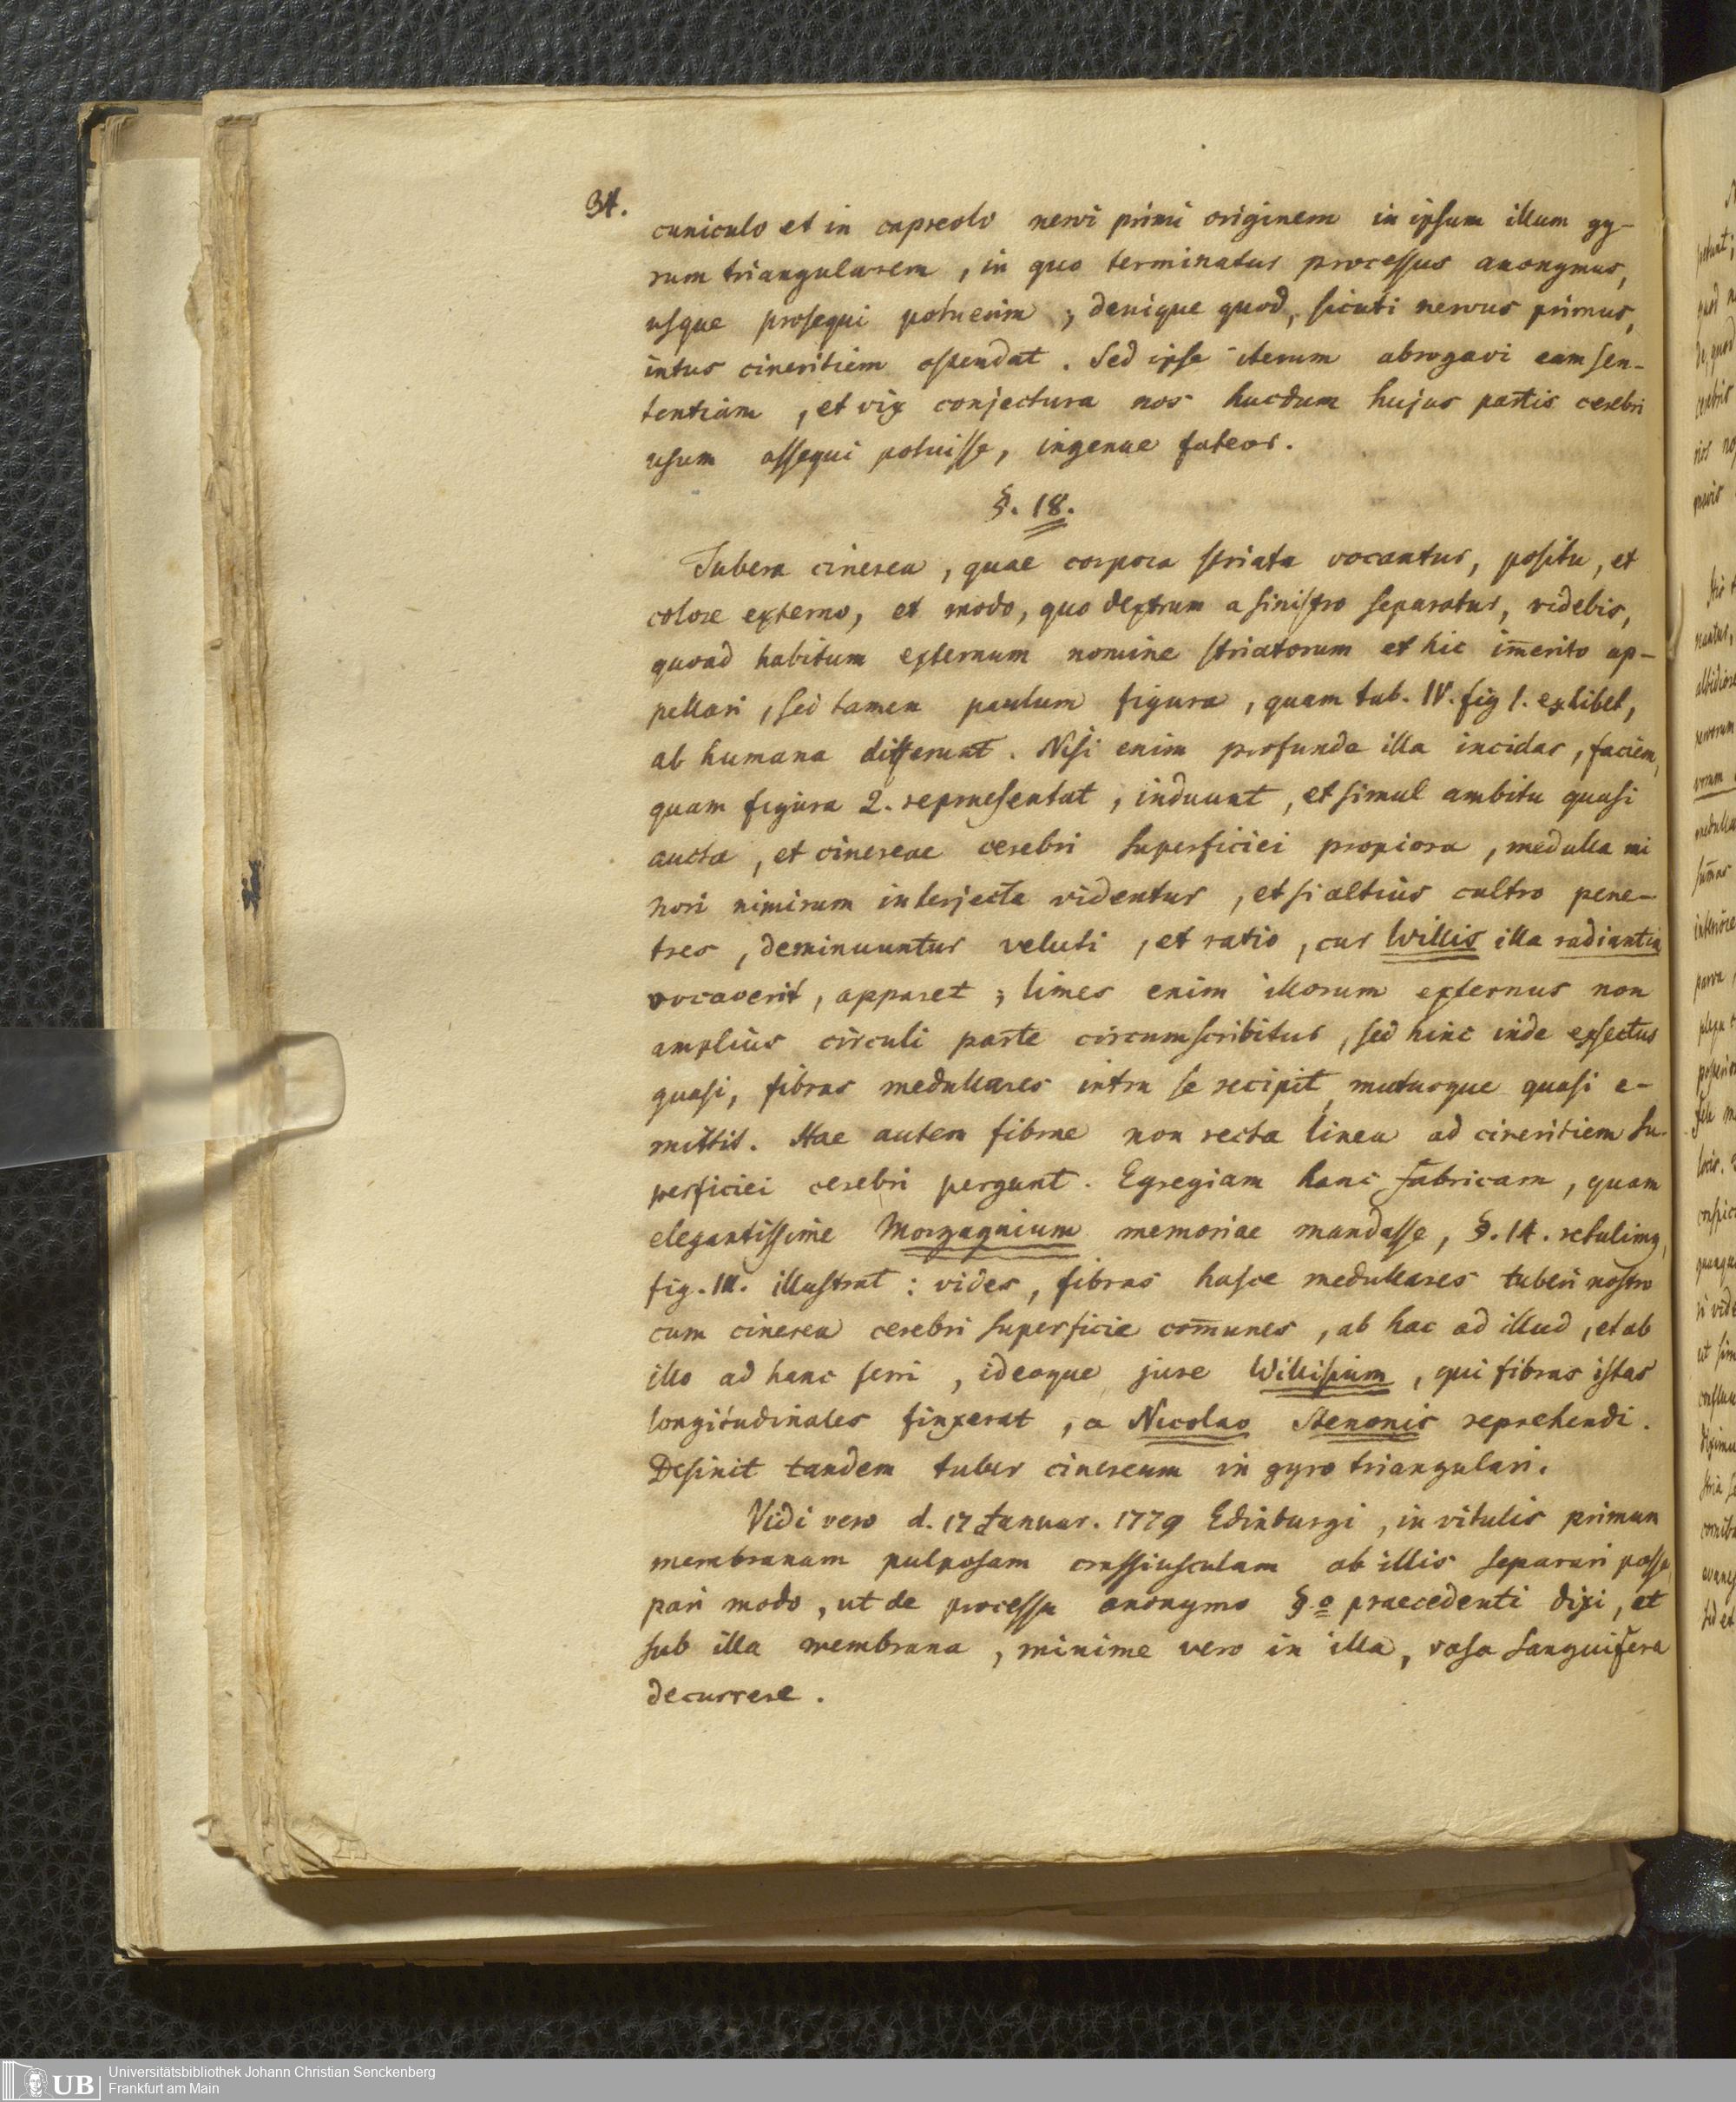 34.
cuniculo et in capreolo nervi primi originem in ipsum illum gy-
rum triangularem, in quo terminatur processus anonymus,
usque prosequi potuerim; denique quod, sicuti nervus primus,
intus cineritiem ostendat. Sed ipse iterum abrogavi eam sen-
tentiam, et vix conjectura nos hucdum hujus partis cerebri
usum assequi potuisse, ingenue fateor.
§. 18.
Tubera cinerea, quae corpora striata vocantur, positu, et
colore externo, et modo, quo dextrum a sinistro separatur, videbis,
quoad habitum externum nomine striatorum et hic im̄erito ap-
pellari, sed tamen paulum figura, quam tab. IV. fig 1. exhibet,
ab humana differunt. Nisi enim profunde illa incidas, faciem,
quam figura 2. repraesentat, induunt, et simul ambitu quasi
aucta, et cinereae cerebri superficiei propiora, medulla mi
nori nimirum interjecta videntur, et si altius cultro pene-
tres, deminuuntur veluti, et ratio, cur Willis illa radiantia
vocaverit, apparet; limes enim illorum externus non
amplius circuli parte circumscribitur, sed hinc inde exsectus
quasi, fibras medullares intra se recipit mutuoque quasi e-
mittit. Hae autem fibrae non recta linea ad cineritiem su-
perficiei cerebri pergunt. Egregiam hanc fabricam, quam
elegantissime Morgagnium memoriae mandasse, §. 14. retulimus,
fig. III. illustrat: vides, fibras hasce medullares tuberi nostro
cum cinerea cerebri superficie com̄unes, ab hac ad illud, et ab
illo ad hanc ferri, ideoque jure Willisium, qui fibras istas
longitudinales finxerat, a Nicolao Stenonis reprehendi.
Desinit tandem tuber cinereum in gyro triangulari.
Vidi vero d. 17 Januar. 1779 Edinburgi, in vitulis primum
membranam pulposam crassiusculam ab illis separari posse,
pari modo, ut de processu anonymo §o praecedenti dixi, et
sub illa membrana, minime vero in illa, vasa sanguifera
decurrere.
Universitätsbibliothek Johann Christian Senckenberg
Frankfurt am Main
UB